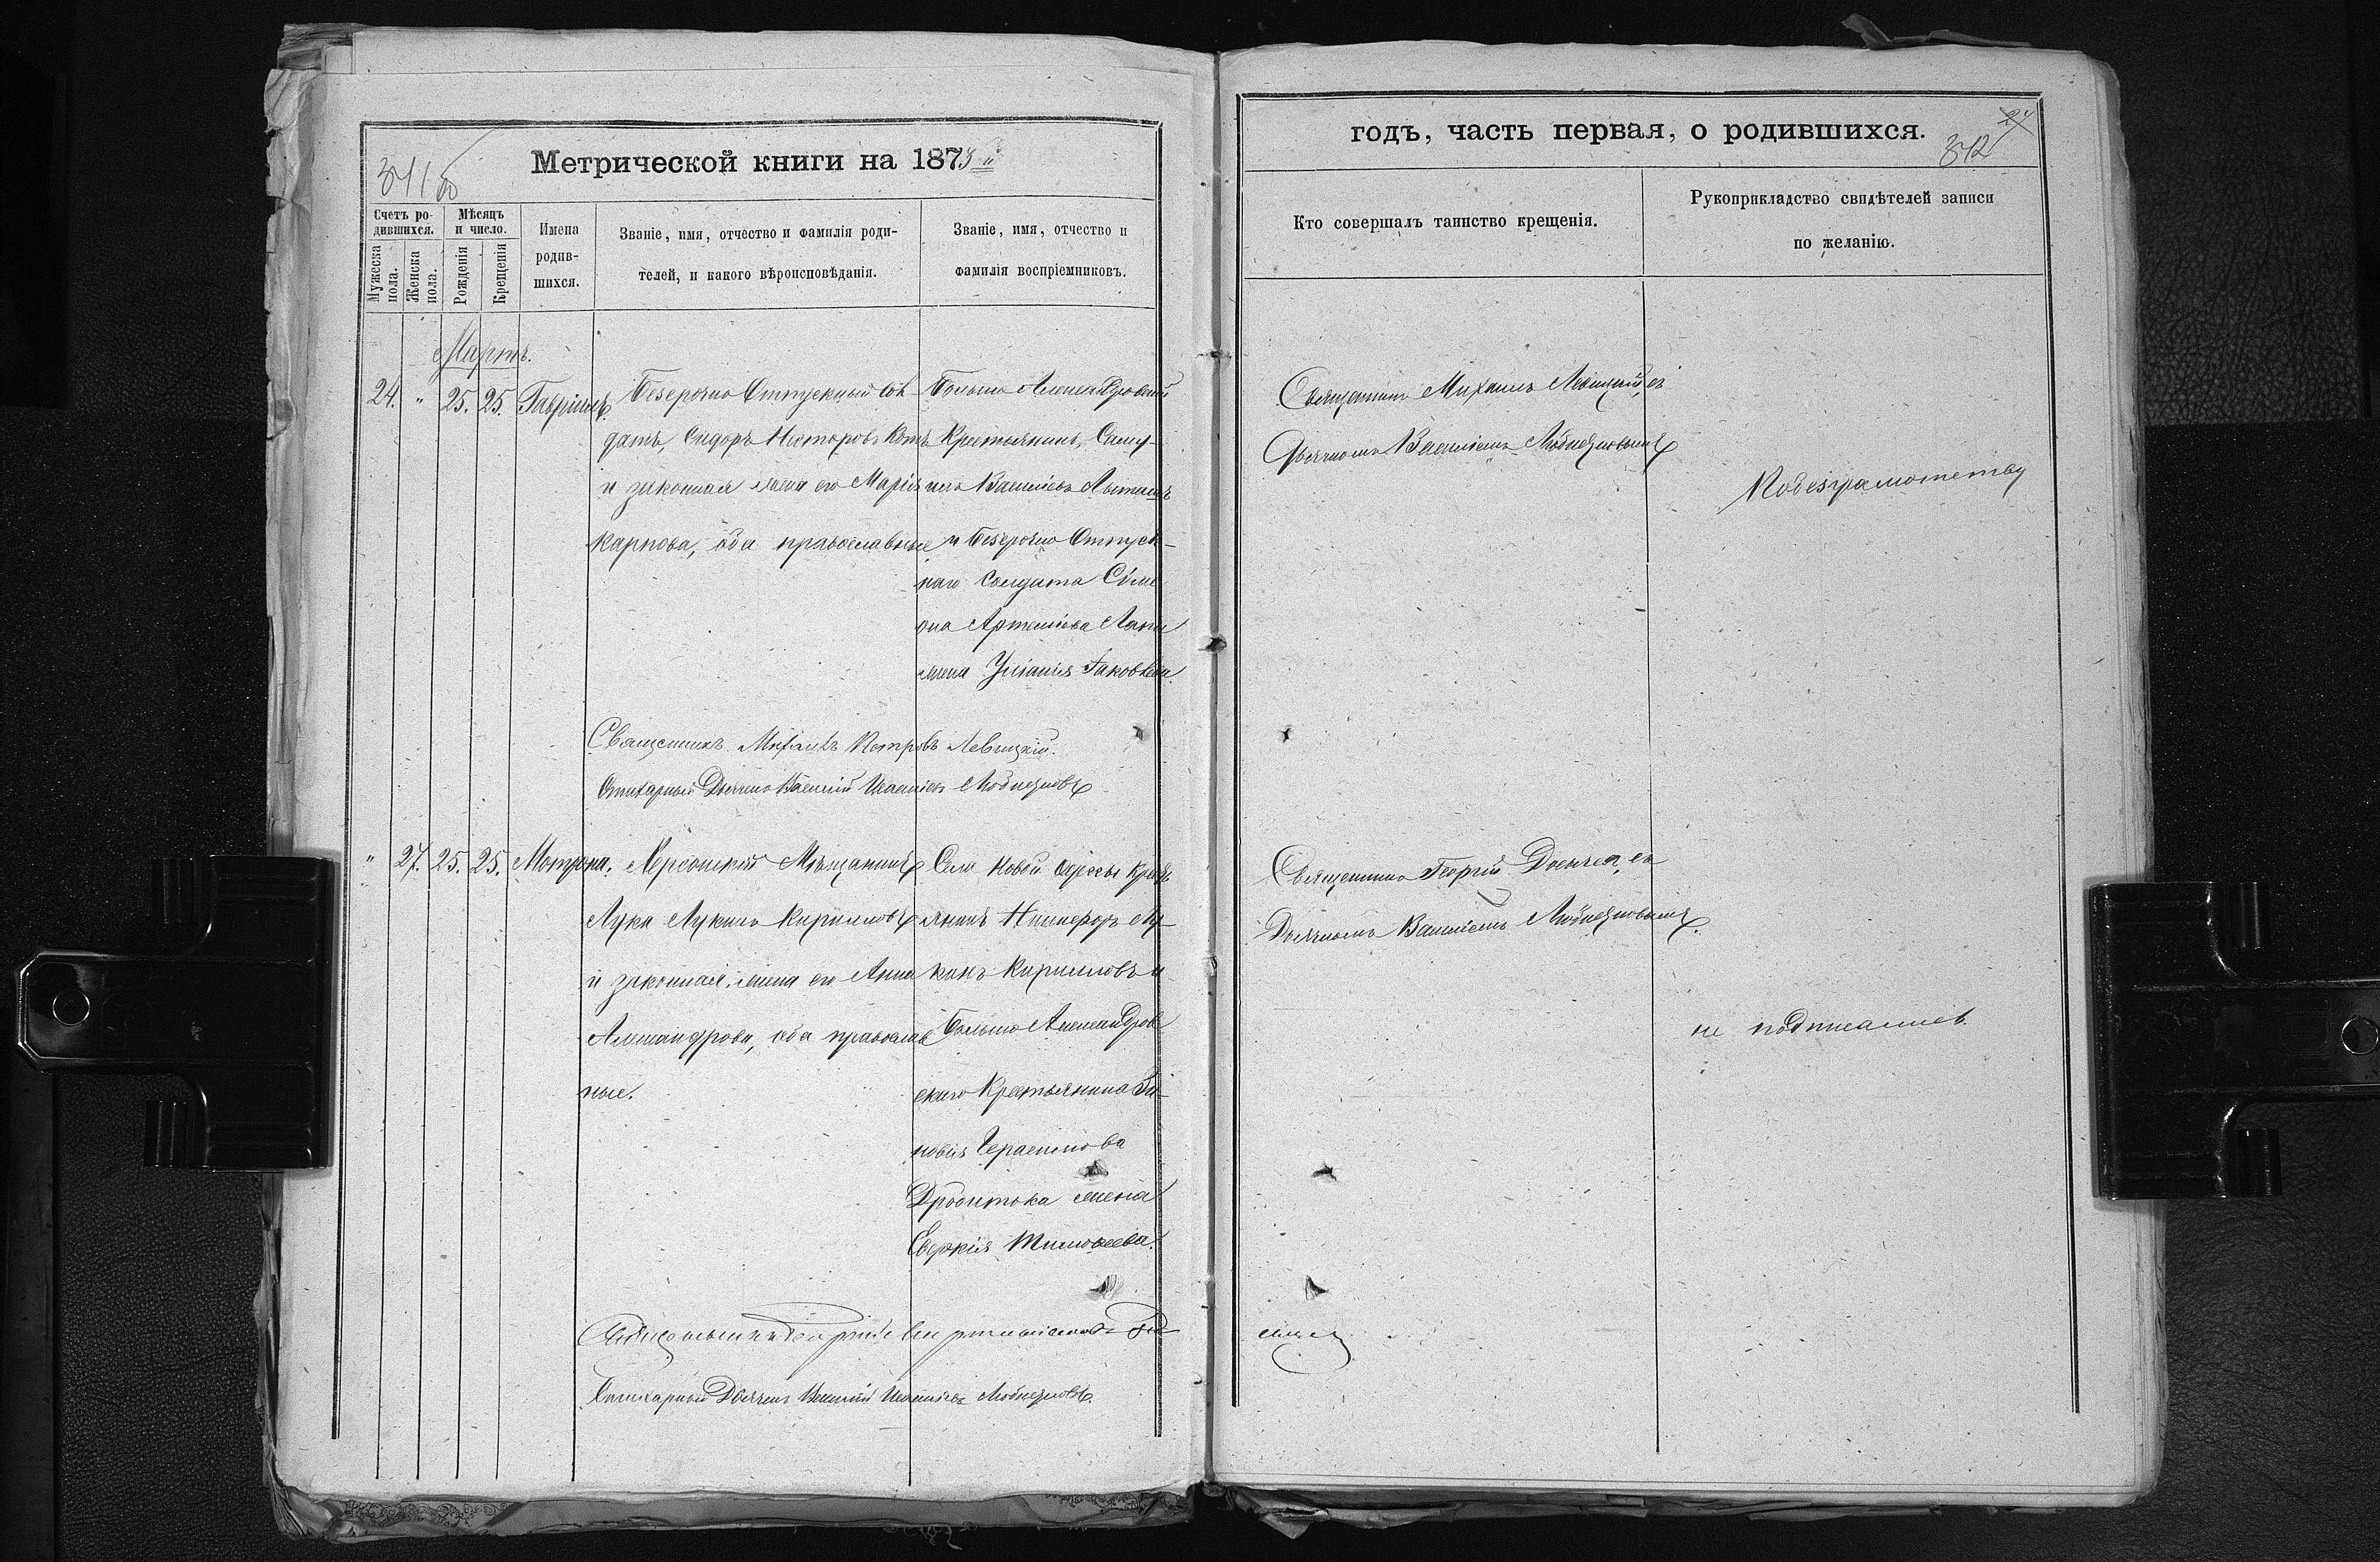 Метрической книги на 1873й
годъ, часть первая, о родившихся.
312
Счетъ ро-
дившихся.
Мужеска
пола.
Женска
пола.
Мѣсяцъ
и число.
Рожденія
Крещенія
Имена
родив-
шихся.
Званіе, имя, отчество и фамилія роди-
телей, и какого вѣроисповѣданія.
Званіе, имя, отчество и
фамилія воспріемниковъ.
Кто совершалъ таинство крещенія.
Рукоприкладство свидѣтелей записи
по желанію.
Мартъ.
24. " 25. 25. Гавріилъ
Безсрочно Отпускный Сол
датъ, Сидоръ Несторовъ Котъ
и законная жена его Марія
Карпова, оба православные
Больше Александровскій
Крестьянинъ, Саму-
илъ Василіевъ
и Безсрочно Отпуск-
наго Солдата Симе
она Артеміева
жена Уліанія Іаковлева
Священникъ Михаилъ Левицкій, съ
Дьячкомъ Василіемъ
По безграмотству
Священникъ Михаилъ Петровъ Левицкій.
Стихарный Дьячекъ Василій
" 27. 25. 25. Мотрона.
Херсонскій Мѣщанинъ
Лука Лукинъ Кирилловъ
и законная жена его Анна
Александрова, оба православ
ные.
Села Новой Одессы Крест
янинъ Никифоръ Лу-
кинъ Кирилловъ и
Больше Александров
скаго Крестьянина Зи-
новія Герасимова
жена
Евдокія Тимофеева.
Священникъ Георгій съ
Дьячкомъ Василіемъ
не подписались.
Стихарный Дьячекъ Василій